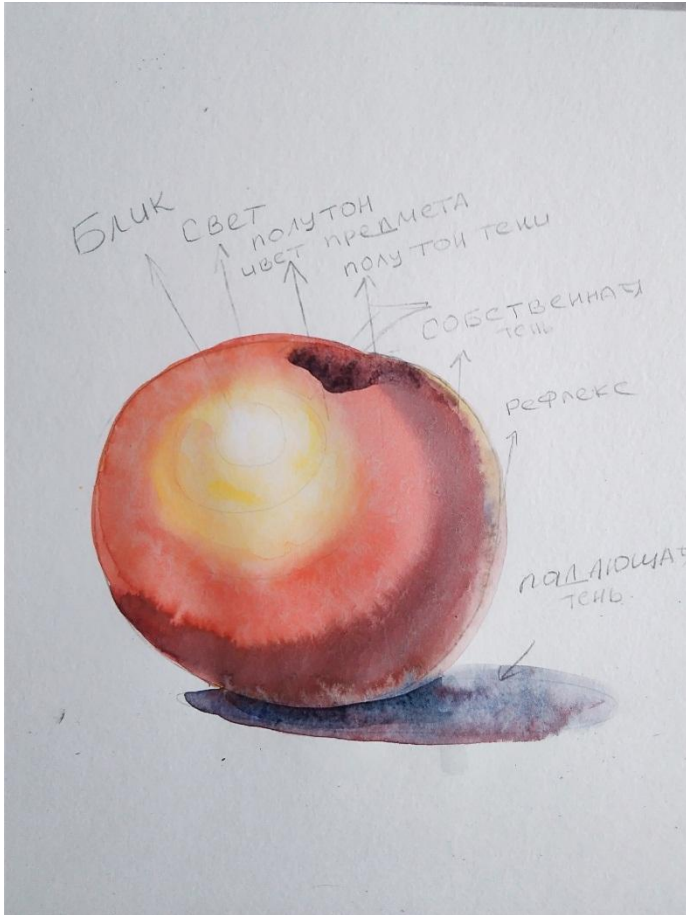 Блик
свет
полутон
цвет предмета
полутон тени
собственная
тень
рефлекс
падающая
тень